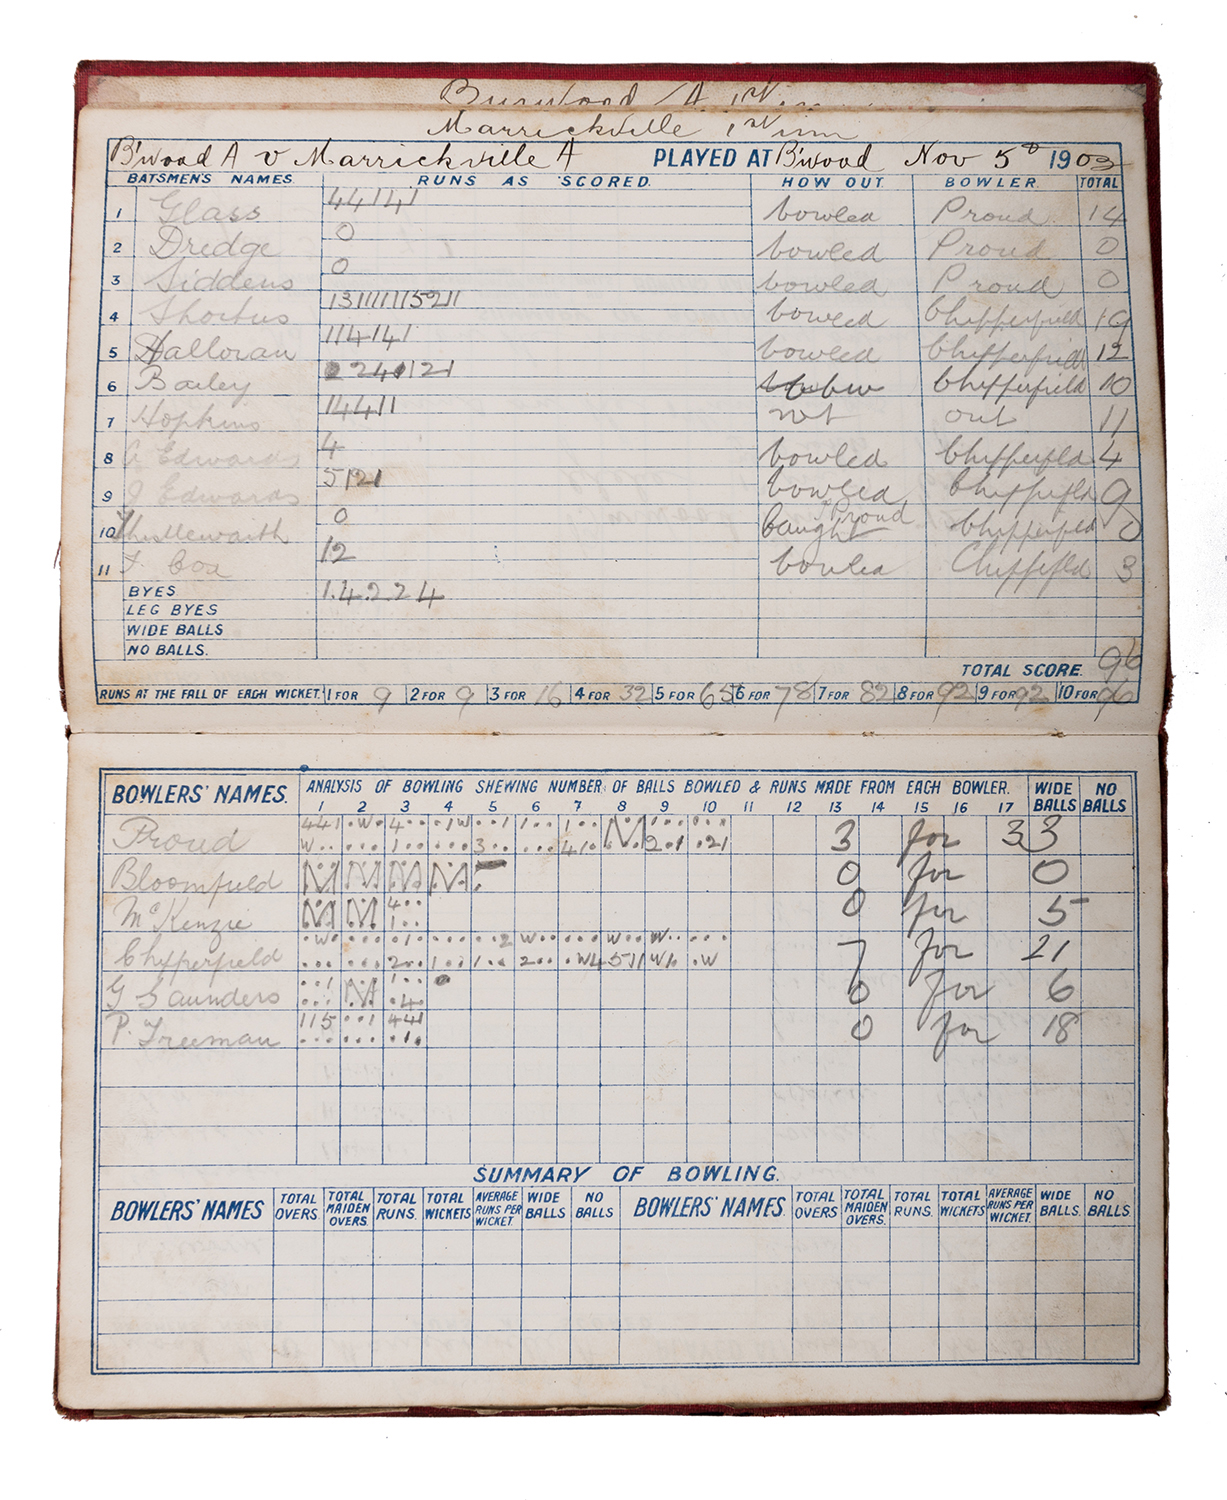 Burwood A 1st Inn
Marrickville 1st inn
B'wood A v Marrickville A PLAYED AT B'wood Nov 5th 1903
BATSMEN'S NAMES. RUNS AS SCORED. HOW OUT. BOWLER. TOTAL
1 Glass 44141 bowled Proud 14
2 Dredge 0 bowled Proud 0
3 Siddens 0 bowled Proud 0
4 bowled Chipperfield 19
5 Halloran 114141 bowled Chipperfield 12
6 Bailey lbw Chipperfield 10
7 Hopkins 14411 not out 11
8 A Edwards 4 bowled Chipperfield 4
9 J Edwards 5121 bowled Chippifild 9
10 Thistlewaith 0 Caught Proud Chipperfild 0
11 Cox 12 bowled Chippifild 3
BYES 1.4.2.2 4
LEG BYES
WIDE BALLS
NO BALLS.
TOTAL SCORE. 96
RUNS AT THE FALL OF EACH WICKET. 1 FOR 9 2 FOR 9 3 FOR 16 4 FOR 32 5 FOR 65 6 FOR 78 7 FOR 82 8 FOR 92 9 FOR 92 10 FOR 96
BOWLERS' NAMES. ANALYSIS OF BOWLING SHEWING NUMBER OF BALLS BOWLED & RUNS MADE FROM EACH BOWLER. WIDE BALLS NO BALLS
1 2 3 4 5 6 7 8 9 10 11 12 13 14 15 16 17
Proud 3 for 33
Bloomfield M M M M 0 for 0
McKenzie M M 0 for 5
Chipperfield 7 for 21
G Saunders 0 for 6
P. Freeman 0 for 18
SUMMARY OF BOWLING.
BOWLERS' NAMES TOTAL OVERS. TOTAL MAIDEN OVERS. TOTAL RUNS. TOTAL WICKETS AVERAGE RUNS PER WICKET. WIDE BALLS NO BALLS BOWLERS' NAMES. TOTAL OVERS. TOTAL MAIDEN OVERS. TOTAL RUNS. TOTAL WICKETS AVERAGE RUNS PER WICKET. WIDE BALLS. NO BALLS.